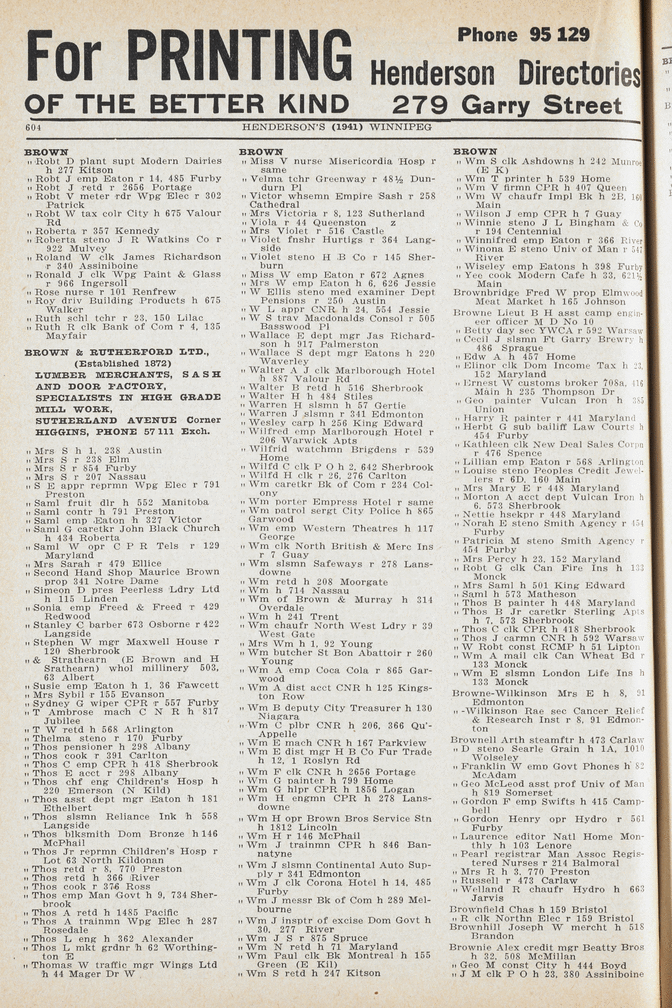 For PRINTING
OF THE BETTER KIND
Phone 95 129
Henderson Directories
279 Garry Street
604
HENDERSON'S (1941) WINNIPEG
BROWN
„ Robt D plant supt Modern Dairies
h 277 Kitson
„ Robt J emp Eaton r 14, 485 Furby
„ Robt J retd r 2656 Portage
„ Robt V meter rdr Wpg Elec r 302
Patrick
„ Robt W tax colr City h 675 Valour
Rd
„ Roberta r 357 Kennedy
„ Roberta steno J R Watkins Co r
922 Mulvey
„ Roland W clk James Richardson
r 340 Assiniboine
„ Ronald J clk Wpg Paint & Glass
r 966 Ingersoll
„ Rose nurse r 101 Renfrew
„ Roy driv Building Products h 675
Walker
„ Ruth schl tchr r 23, 150 Lilac
„ Ruth R clk Bank of Com r 4, 135
Mayfair
BROWN & RUTHERFORD LTD.,
(Established 1872)
LUMBER MERCHANTS, SASH
AND DOOR FACTORY,
SPECIALISTS IN HIGH GRADE
MILL WORK,
SUTHERLAND AVENUE Corner
HIGGINS, PHONE 57 111 Exch.
„ Mrs S h 1, 238 Austin
„ Mrs S r 238 Elm
„ Mrs S r 854 Furby
„ Mrs S r 207 Nassau
„ S E appr reprmn Wpg Elec r 791
Preston
„ Saml fruit dlr h 552 Manitoba
„ Saml contr h 791 Preston
„ Saml emp Eaton h 327 Victor
„ Saml G caretkr John Black Church
h 434 Roberta
„ Saml W opr C P R Tels r 129
Maryland
„ Mrs Sarah r 479 Ellice
„ Second Hand Shop Maurice Brown
prop 341 Notre Dame
„ Simeon D pres Peerless Ldry Ltd
h 115 Linden
„ Sonia emp Freed & Freed r 429
Redwood
„ Stanley C barber 673 Osborne r 422
Langside
„ Stephen W mgr Maxwell House r
120 Sherbrook
„ & Strathearn (E Brown and H
Strathearn) whol millinery 503,
63 Albert
„ Susie emp Eaton h 1, 36 Fawcett
„ Mrs Sybil r 155 Evanson
„ Sydney G wiper CPR r 557 Furby
„ T Ambrose mach C N R h 817
Jubilee
„ T W retd h 568 Arlington
„ Thelma steno r 170 Furby
„ Thos pensioner h 298 Albany
„ Thos cook r 391 Carlton
„ Thos C emp CPR h 418 Sherbrook
„ Thos E acct r 298 Albany
„ Thos chf eng Children's Hosp h
220 Emerson (N Kild)
„ Thos asst dept mgr Eaton h 181
Ethelbert
„ Thos slsmn Reliance Ink h 558
Langside
„ Thos blksmith Dom Bronze h 146
McPhail
„ Thos Jr reprmn Children's Hosp r
Lot 63 North Kildonan
„ Thos retd r 8, 770 Preston
„ Thos retd h 366 River
„ Thos cook r 376 Ross
„ Thos emp Man Govt h 9, 734 Sher-
brook
„ Thos A retd h 1485 Pacific
„ Thos A trainmn Wpg Elec h 287
Rosedale
„ Thos L eng h 362 Alexander
„ Thos L mkt grdnr h 62 Worthing-
ton E
„ Thomas W traffic mgr Wings Ltd
h 44 Mager Dr W
BROWN
„ Miss V nurse Misericordia Hosp r
same
„ Velma tchr Greenway r 48½ Dun-
durn Pl
„ Victor whsemn Empire Sash r 258
Cathedral
„ Mrs Victoria r 8, 123 Sutherland
„ Viola r 44 Queenston z
„ Mrs Violet r 516 Castle
„ Violet fnshr Hurtigs r 364 Lang-
side
„ Violet steno H B Co r 145 Sher-
burn
„ Miss W emp Eaton r 672 Agnes
„ Mrs W emp Eaton h 6, 626 Jessie
„ W Ellis steno med examiner Dept
Pensions r 250 Austin
„ W L appr CNR h 24, 554 Jessie
„ W S trav Macdonalds Consol r 505
Basswood Pl
„ Wallace E dept mgr Jas Richard-
son h 917 Palmerston
„ Wallace S dept mgr Eatons h 220
Waverley
„ Walter A J clk Marlborough Hotel
h 887 Valour Rd
„ Walter B retd h 516 Sherbrook
„ Walter H h 484 Stiles
„ Warren H slsmn h 57 Gertie
„ Warren J slsmn r 341 Edmonton
„ Wesley carp h 256 King Edward
„ Wilfred emp Marlborough Hotel r
206 Warwick Apts
„ Wilfrid watchmn Brigdens r 539
Home
„ Wilfd C clk P O h 2, 642 Sherbrook
„ Wilfd H clk r 26, 276 Carlton
„ Wm caretkr Bk of Com r 234 Col-
ony
„ Wm porter Empress Hotel r same
„ Wm patrol sergt City Police h 865
Garwood
„ Wm emp Western Theatres h 117
George
„ Wm clk North British & Merc Ins
r 7 Guay
„ Wm slsmn Safeways r 278 Lans-
downe
„ Wm retd h 208 Moorgate
„ Wm h 714 Nassau
„ Wm of Brown & Murray h 314
Overdale
„ Wm h 241 Trent
„ Wm chaufr North West Ldry r 39
West Gate
„ Mrs Wm h 1, 92 Young
„ Wm butcher St Bon Abattoir r 260
Young
„ Wm A emp Coca Cola r 865 Gar-
wood
„ Wm A dist acct CNR h 125 Kings-
ton Row
„ Wm B deputy City Treasurer h 130
Niagara
„ Wm C plbr CNR h 206, 366 Qu'-
Appelle
„ Wm E mach CNR h 167 Parkview
„ Wm E dist mgr H B Co Fur Trade
h 12, 1 Roslyn Rd
„ Wm F clk CNR h 2656 Portage
„ Wm G painter h 799 Home
„ Wm G hlpr CPR h 1856 Logan
„ Wm H engmn CPR h 278 Lans-
downe
„ Wm H opr Brown Bros Service Stn
h 1812 Lincoln
„ Wm H r 146 McPhail
„ Wm J trainmn CPR h 846 Ban-
natyne
„ Wm J slsmn Continental Auto Sup-
ply r 341 Edmonton
„ Wm J clk Corona Hotel h 14, 485
Furby
„ Wm J messr Bk of Com h 289 Mel-
bourne
„ Wm J insptr of excise Dom Govt h
30, 277 River
„ Wm J S r 875 Spruce
„ Wm N retd h 71 Maryland
„ Wm Paul clk Bk Montreal h 155
Green (E Kil)
„ Wm S retd h 247 Kitson
BROWN
„ Wm S clk Ashdowns h 242 Munroe
(E K)
„ Wm T printer h 539 Home
„ Wm V firmn CPR h 407 Queen
„ Wm W chaufr Impl Bk h 2B, 160
Main
„ Wilson J emp CPR h 7 Guay
„ Winnie steno J L Bingham & Co
r 194 Centennial
„ Winnifred emp Eaton r 366 River
„ Winona E steno Univ of Man r 547
River
„ Wiseley emp Eatons h 398 Furby
„ Yee cook Modern Cafe h 33, 621½
Main
Brownbridge Fred W prop Elmwood
Meat Market h 165 Johnson
Browne Lieut B H asst camp engin-
eer officer M D No 10
„ Betty day sec YWCA r 592 Warsaw
„ Cecil J slsmn Ft Garry Brewry h
486 Sprague
„ Edw A h 457 Home
„ Elinor clk Dom Income Tax h 23,
152 Maryland
„ Ernest W customs broker 708a, 416
Main h 235 Thompson Dr
„ Geo painter Vulcan Iron h 385
Union
„ Harry R painter r 441 Maryland
„ Herbt G sub bailiff Law Courts h
454 Furby
„ Kathleen clk New Deal Sales Corpn
r 476 Spence
„ Lillian emp Eaton r 568 Arlington
„ Louise steno Peoples Credit Jewel-
lers r 6D, 160 Main
„ Mrs Mary E r 448 Maryland
„ Morton A acct dept Vulcan Iron h
6, 573 Sherbrook
„ Nettie hsekpr r 448 Maryland
„ Norah E steno Smith Agency r 454
Furby
„ Patricia M steno Smith Agency r
454 Furby
„ Mrs Percy h 23, 152 Maryland
„ Robt G clk Can Fire Ins h 133
Monck
„ Mrs Saml h 501 King Edward
„ Saml h 573 Matheson
„ Thos B painter h 448 Maryland
„ Thos B Jr caretkr Sterling Apts
h 7, 573 Sherbrook
„ Thos C clk CPR h 418 Sherbrook
„ Thos J carmn CNR h 592 Warsaw
„ W Robt const RCMP h 51 Lipton
„ Wm A mail clk Can Wheat Bd r
133 Monck
„ Wm E slsmn London Life Ins h
133 Monck
Browne-Wilkinson Mrs E h 8, 91
Edmonton
„ -Wilkinson Rae sec Cancer Relief
& Research Inst r 8, 91 Edmon-
ton
Brownell Arth steamftr h 473 Carlaw
„ D steno Searle Grain h 1A, 1010
Wolseley
„ Franklin W emp Govt Phones h 82
McAdam
„ Geo McLeod asst prof Univ of Man
h 819 Somerset
„ Gordon F emp Swifts h 415 Camp-
bell
„ Gordon Henry opr Hydro r 561
Furby
„ Laurence editor Natl Home Mon-
thly h 103 Lenore
„ Pearl registrar Man Assoc Regis-
tered Nurses r 214 Balmoral
„ Mrs R h 3, 770 Preston
„ Russell r 473 Carlaw
„ Welland R chaufr Hydro h 663
Jarvis
Brownfield Chas h 159 Bristol
„ R clk Northn Elec r 159 Bristol
Brownhill Joseph W mercht h 518
Brandon
Brownie Alex credit mgr Beatty Bros
h 32, 508 McMillan
„ Geo M const City h 444 Boyd
„ J M clk P O h 23, 380 Assiniboine